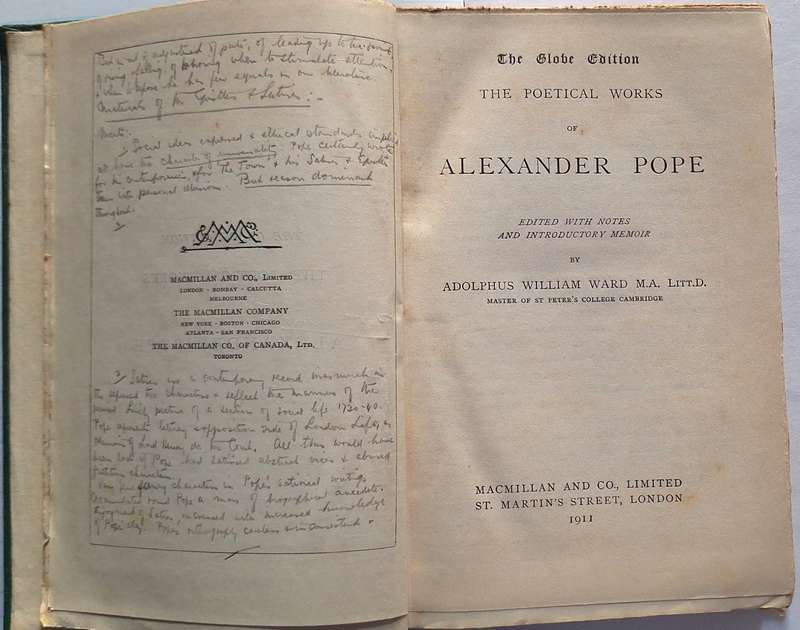 But in art of adjustment of parts, of leading up to his point,
of knowing when to stimulate attention,
& when to he has few equals in our literature.
Materials of the Epistles & Satires: -
Merits.
1/ Social ideas expressed & ethical standards
the character of universality. Pope certainly wrote
for his contemporaries, of & for "The Town" & his Satires & Epistles
personal allusions. But reason dominant
throughout.
MACMILLAN AND CO., LIMITED
LONDON · BOMBAY · CALCUTTA
MELBOURNE
THE MACMILLAN COMPANY
NEW YORK · BOSTON · CHICAGO
ATLANTA · SAN FRANCISCO
THE MACMILLAN CO. OF CANADA, LTD.
TORONTO
2/ Satires are a contemporary record inasmuch as
the characters & reflect the manners of the
period. picture of a section of social life 1730-40.
Pope literary & opposition side of London Life, as
Lord the Court. All this would have
been lost if Pope had satirised abstract vices & abused
characters.
characters in Pope's satirical writing.
Accumulated round Pope a mass of biographical anecdote.
Enjoyment of Satires, increased with increased knowledge
of Pope's life. Pope's
The Globe Edition
THE POETICAL WORKS
OF
ALEXANDER POPE
EDITED WITH NOTES
AND INTRODUCTORY MEMOIR
BY
ADOLPHUS WILLIAM WARD M.A. LITT.D.
MASTER OF ST PETER'S COLLEGE CAMBRIDGE
MACMILLAN AND CO., LIMITED
ST. MARTIN'S STREET, LONDON
1911